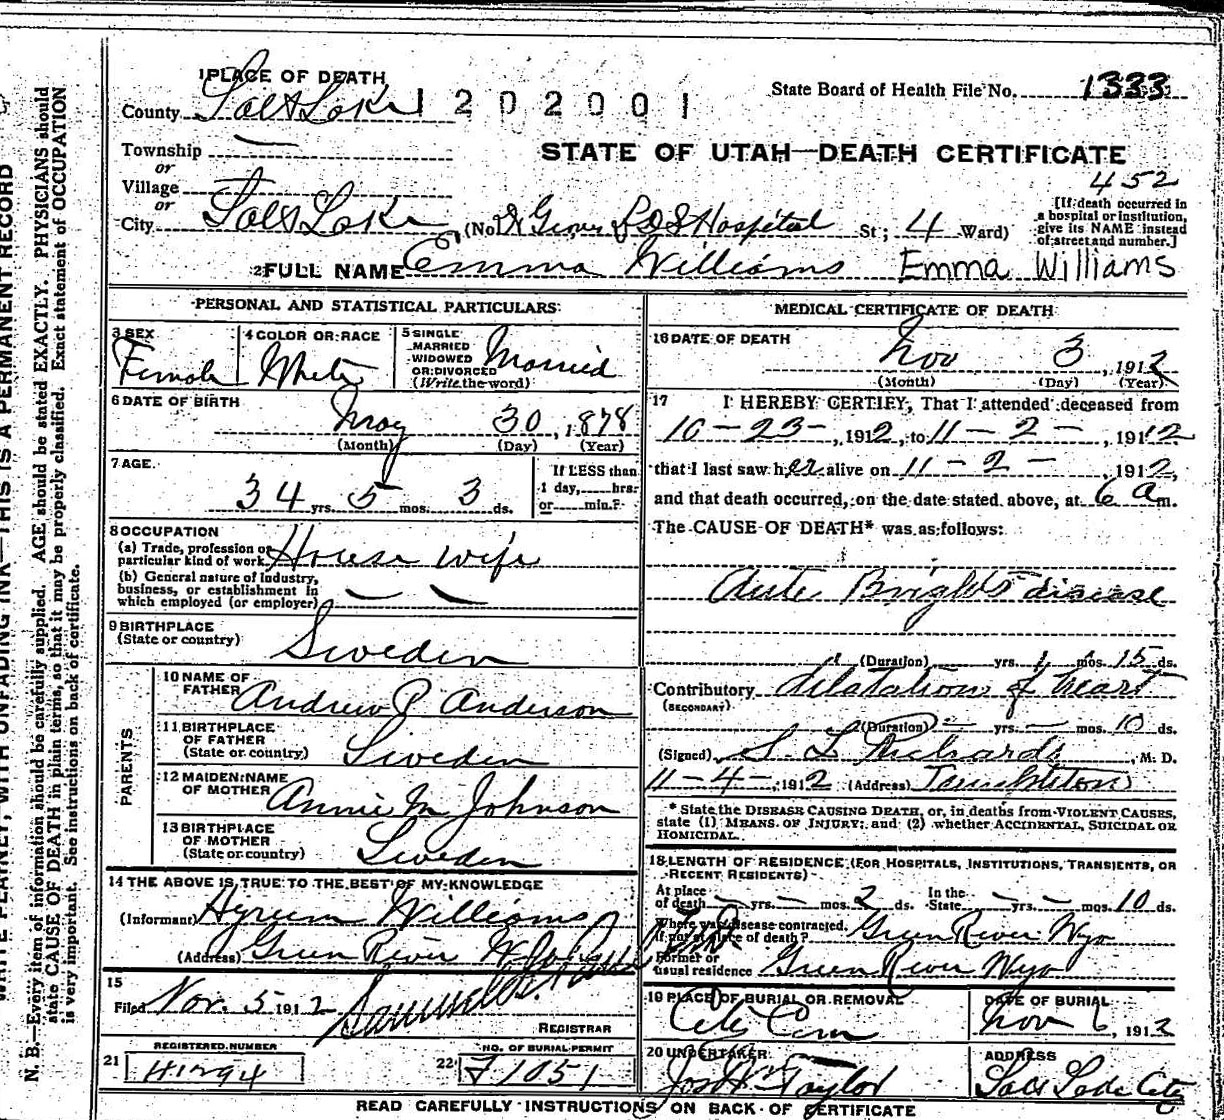 1 PLACE OF DEATH
County Salt Lake 1202001
State Board of Health File No. 1333
Township —
or
Village
or
City Salt Lake (No. Grover LDS Hospital St; 4 Ward)
STATE OF UTAH—DEATH CERTIFICATE
452
[If death occurred in
a hospital or institution,
give its NAME instead
of street and number.]
2 FULL NAME Emma Williams Emma Williams
PERSONAL AND STATISTICAL PARTICULARS
3 SEX
Female
4 COLOR OR RACE
White
5 SINGLE
MARRIED
WIDOWED
OR DIVORCED
(Write the word)
Married
6 DATE OF BIRTH
May 30, 1878
(Month) (Day) (Year)
7 AGE
34 yrs. 5 mos. 3 ds.
If LESS than
1 day, hrs.
or min.?
8 OCCUPATION
(a) Trade, profession or
particular kind of work House wife
(b) General nature of industry,
business, or establishment in
which employed (or employer) — —
9 BIRTHPLACE
(State or country) Sweden
PARENTS
10 NAME OF
FATHER Andrew P Anderson
11 BIRTHPLACE
OF FATHER
(State or country) Sweden
12 MAIDEN NAME
OF MOTHER Annie M Johnson
13 BIRTHPLACE
OF MOTHER
(State or country) Sweden
14 THE ABOVE IS TRUE TO THE BEST OF MY KNOWLEDGE
(Informant) Hyrum Williams
(Address) Green River Wyo
15
Filed Nov. 5 1912
REGISTRAR
REGISTERED NUMBER
21 H1294
NO. OF BURIAL PERMIT
22 F1051
MEDICAL CERTIFICATE OF DEATH
16 DATE OF DEATH
Nov 3, 1912
(Month) (Day) (Year)
17 I HEREBY CERTIFY, That I attended deceased from
10-23-, 1912, to 11-2-, 1912
that I last saw her alive on 11-2-, 1912,
and that death occurred, on the date stated above, at 6 a m.
The CAUSE OF DEATH* was as follows:
Acute Brights disease
(Duration) yrs. 1 mos. 15 ds.
Contributory dilatation of heart
(SECONDARY)
(Duration) — yrs. — mos. 10 ds.
(Signed) S L Richards, M. D.
11-4-, 1912 (Address)
* State the DISEASE CAUSING DEATH, or, in deaths from VIOLENT CAUSES,
state (1) MEANS OF INJURY; and (2) whether ACCIDENTAL, SUICIDAL OR
HOMICIDAL.
18 LENGTH OF RESIDENCE (FOR HOSPITALS, INSTITUTIONS, TRANSIENTS, OR
RECENT RESIDENTS)
At place
of death — yrs. — mos. 2 ds. In the
State — yrs. — mos. 10 ds.
Where was disease contracted,
if not at place of death? Green River Wyo
Former or
usual residence Green River Wyo
19 PLACE OF BURIAL OR REMOVAL
City Cem
DATE OF BURIAL
Nov 6, 1912
20 UNDERTAKER
Jos Wm Taylor
ADDRESS
Salt Lake City
READ CAREFULLY INSTRUCTIONS ON BACK OF CERTIFICATE
WRITE PLAINLY, WITH UNFADING INK—THIS IS A PERMANENT RECORD
N. B.—Every item of information should be carefully supplied. AGE should be stated EXACTLY. PHYSICIANS should
state CAUSE OF DEATH in plain terms, so that it may be properly classified. Exact statement of OCCUPATION
is very important. See instructions on back of certificate.